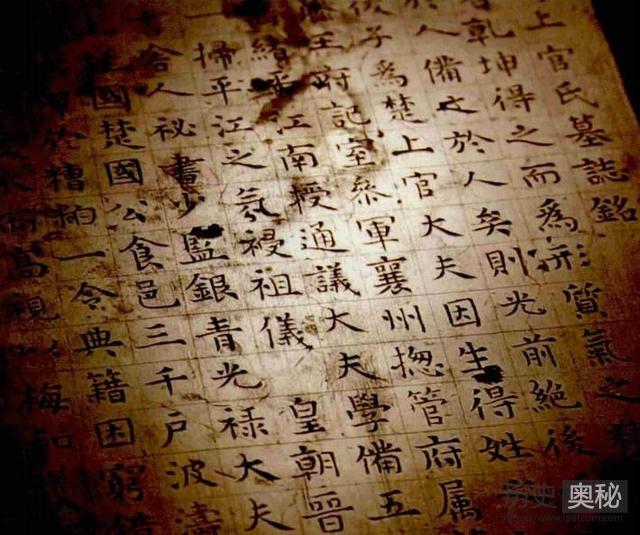 上官氏墓誌銘
乾坤得之而為形質氣之
於人備之於人矣則光前絕後
子爲楚上官大夫因生得姓
王府記室叅軍襄州揔管府属
緒平江南授通議大夫學備五
一掃平江之氛祲祖儀皇朝晉
舍人祕書少監銀青光禄大夫
國楚國公食邑三千戶波濤
於糟粕一令典籍困窮
高視以梅和
历史奥秘